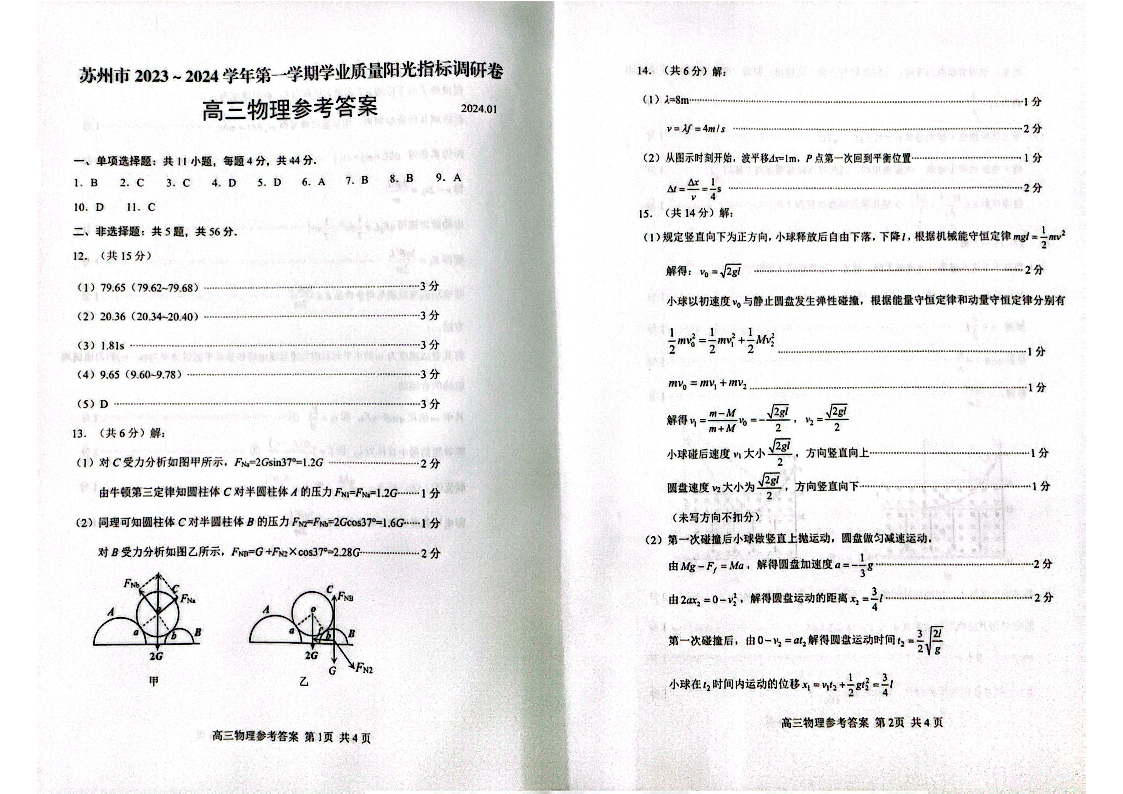 苏州市 2023～2024 学年第一学期学业质量阳光指标调研卷
高三物理参考答案
2024.01
一、单项选择题：共 11 小题，每题 4 分，共 44 分．
1．B 2．C 3．C 4．D 5．D 6．A 7．B 8．B 9．A
10．D 11．C
二、非选择题：共 5 题，共 56 分．
12．（共 15 分）
（1）79.65（79.62~79.68）……3 分
（2）20.36（20.34~20.40）……3 分
（3）1.81s ……3 分
（4）9.65（9.60~9.78）……3 分
（5）D ……3 分
13．（共 6 分）解：
（1）对 C 受力分析如图甲所示，FNa=2Gsin37°=1.2G ……2 分
由牛顿第三定律知圆柱体 C 对半圆柱体 A 的压力 FN1=FNa=1.2G……1 分
（2）同理可知圆柱体 C 对半圆柱体 B 的压力 FN2=FNb=2Gcos37°=1.6G……1 分
对 B 受力分析如图乙所示，FNB=G +FN2×cos37°=2.28G……2 分
FNb C FNa A a b B 2G
甲
C FNB A o a b B 2G G FN2
乙
高三物理参考答案 第 1页 共 4 页
14．（共 6 分）解：
（1）λ=8m……1 分
v = λf = 4m/s ……2 分
（2）从图示时刻开始，波平移Δx=1m，P 点第一次回到平衡位置……1 分
Δt = Δx/v = 1/4 s ……2 分
15．（共 14 分）解：
（1）规定竖直向下为正方向，小球释放后自由下落，下降 l，根据机械能守恒定律 mgl = 1/2 mv²
解得：v₀ = √2gl ……2 分
小球以初速度 v₀ 与静止圆盘发生弹性碰撞，根据能量守恒定律和动量守恒定律分别有
1/2 mv₀² = 1/2 mv₁² + 1/2 Mv₂² ……1 分
mv₀ = mv₁ + mv₂ ……1 分
解得 v₁ = (m−M)/(m+M) v₀ = −√2gl/2，v₂ = √2gl/2
小球碰后速度 v₁ 大小 √2gl/2，方向竖直向上……1 分
圆盘速度 v₂ 大小为 √2gl/2，方向竖直向下……1 分
（未写方向不扣分）
（2）第一次碰撞后小球做竖直上抛运动，圆盘做匀减速运动．
由 Mg − Ff = Ma，解得圆盘加速度 a = −1/3 g ……2 分
由 2ax₂ = 0 − v₂²，解得圆盘运动的距离 x₂ = 3/4 l ……2 分
第一次碰撞后，由 0 − v₂ = at₂ 解得圆盘运动时间 t₂ = 3/2 √(2l/g)
小球在 t₂ 时间内运动的位移 x₁ = v₁t₂ + 1/2 gt₂² = 3/4 l
高三物理参考答案 第 2页 共 4 页